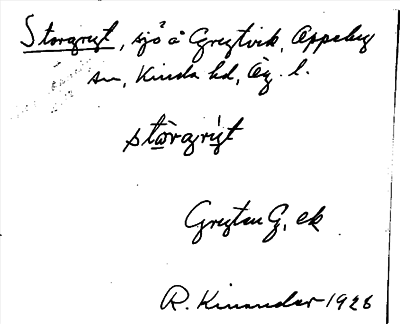 Storgryt, sjö å Grytvik, Oppeby
sn, Kinda hd, Ög. l.
stòrgrỳt
Gryten G, ek
R. Kinander 1926